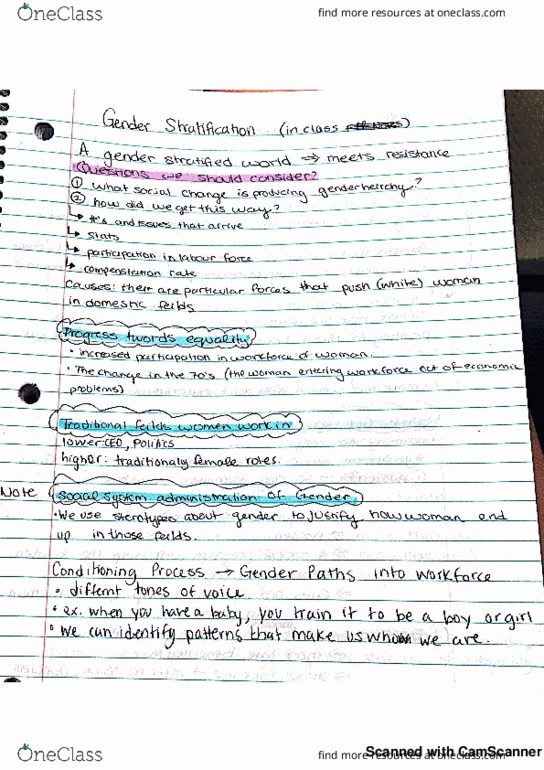 OneClass
find more resources at oneclass.com
Gender Stratification (in class)
A gender stratified world ⇒ meets resistance
Questions we should consider?
① what social change is producing genderheirchy?
② how did we get this way?
↳ It's and issues that arrive
↳ Stats
↳ participation in labour force
↳ compensation rate
Causes: their are particular forces that push (white) woman
in domestic feilds
Progress twords equality
• increased participation in workforce of woman
• The change in the 70's (the woman entering workforce out of economic
problems)
Traditional feilds women work in
lower: CEO, Politics
higher: traditionaly female roles.
Note
Social system administration of Gender
• We use sterotypes about gender to justify how woman end
up in those feilds.
Conditioning Process → Gender Paths into workforce
• differnt tones of voice
• ex. when you have a baby, you train it to be a boy or girl
• we can identify patterns that make us whom we are.
OneClass
find more resources at oneclass.com
Scanned with CamScanner